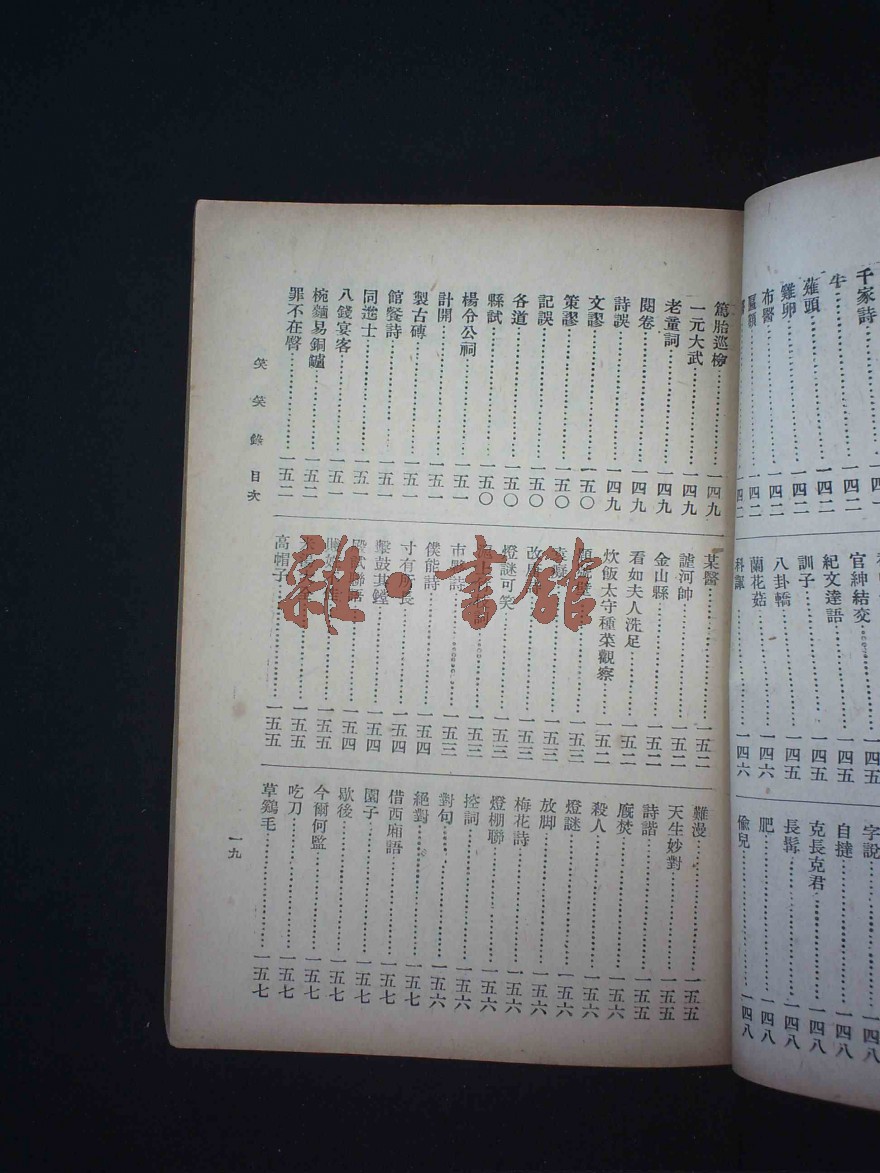 千家詩
牛
薙頭 一四二
雞卵 一四二
布醫 一四二
官紳結交
紀文達語 一四五
訓子 一四五
八卦轎 一四五
蘭花菇 一四六
科諢 一四六
字說 一四八
自撻 一四八
克長克君 一四八
長髯 一四八
肥 一四八
偷兒 一四八
篤胎巡檢 一四九
一元大武 一四九
老童詞 一四九
閱卷 一四九
詩誤 一四九
文謬 一五〇
策謬 一五〇
記誤 一五〇
各道 一五〇
縣試 一五〇
楊令公祠 一五一
計開 一五一
製古磚 一五一
館餐詩 一五一
同進士 一五一
八錢宴客 一五一
椀麵易銅鑪 一五二
罪不在臀 一五二
某醫 一五二
謔河帥 一五二
金山縣 一五二
看如夫人洗足 一五二
炊飯太守種菜觀察 一五二
一五三
一五三
改 一五三
燈謎可笑 一五三
詞 一五三
市 詩 一五三
僕能詩 一五四
寸有所長 一五四
擊鼓其鏜 一五四
殿試聯語 一五四
一五五
一五五
高帽子 一五五
難漫 一五五
天生妙對 一五五
詩諧 一五五
廐焚 一五六
殺人 一五六
燈謎 一五六
放脚 一五六
梅花詩 一五六
燈棚聯 一五六
控詞 一五六
對句 一五六
絕對 一五七
借西廂語 一五七
園子 一五七
歇後 一五七
今爾何監 一五七
吃刀 一五七
草鷄毛 一五七
笑笑錄 目次
一九
雜·書館